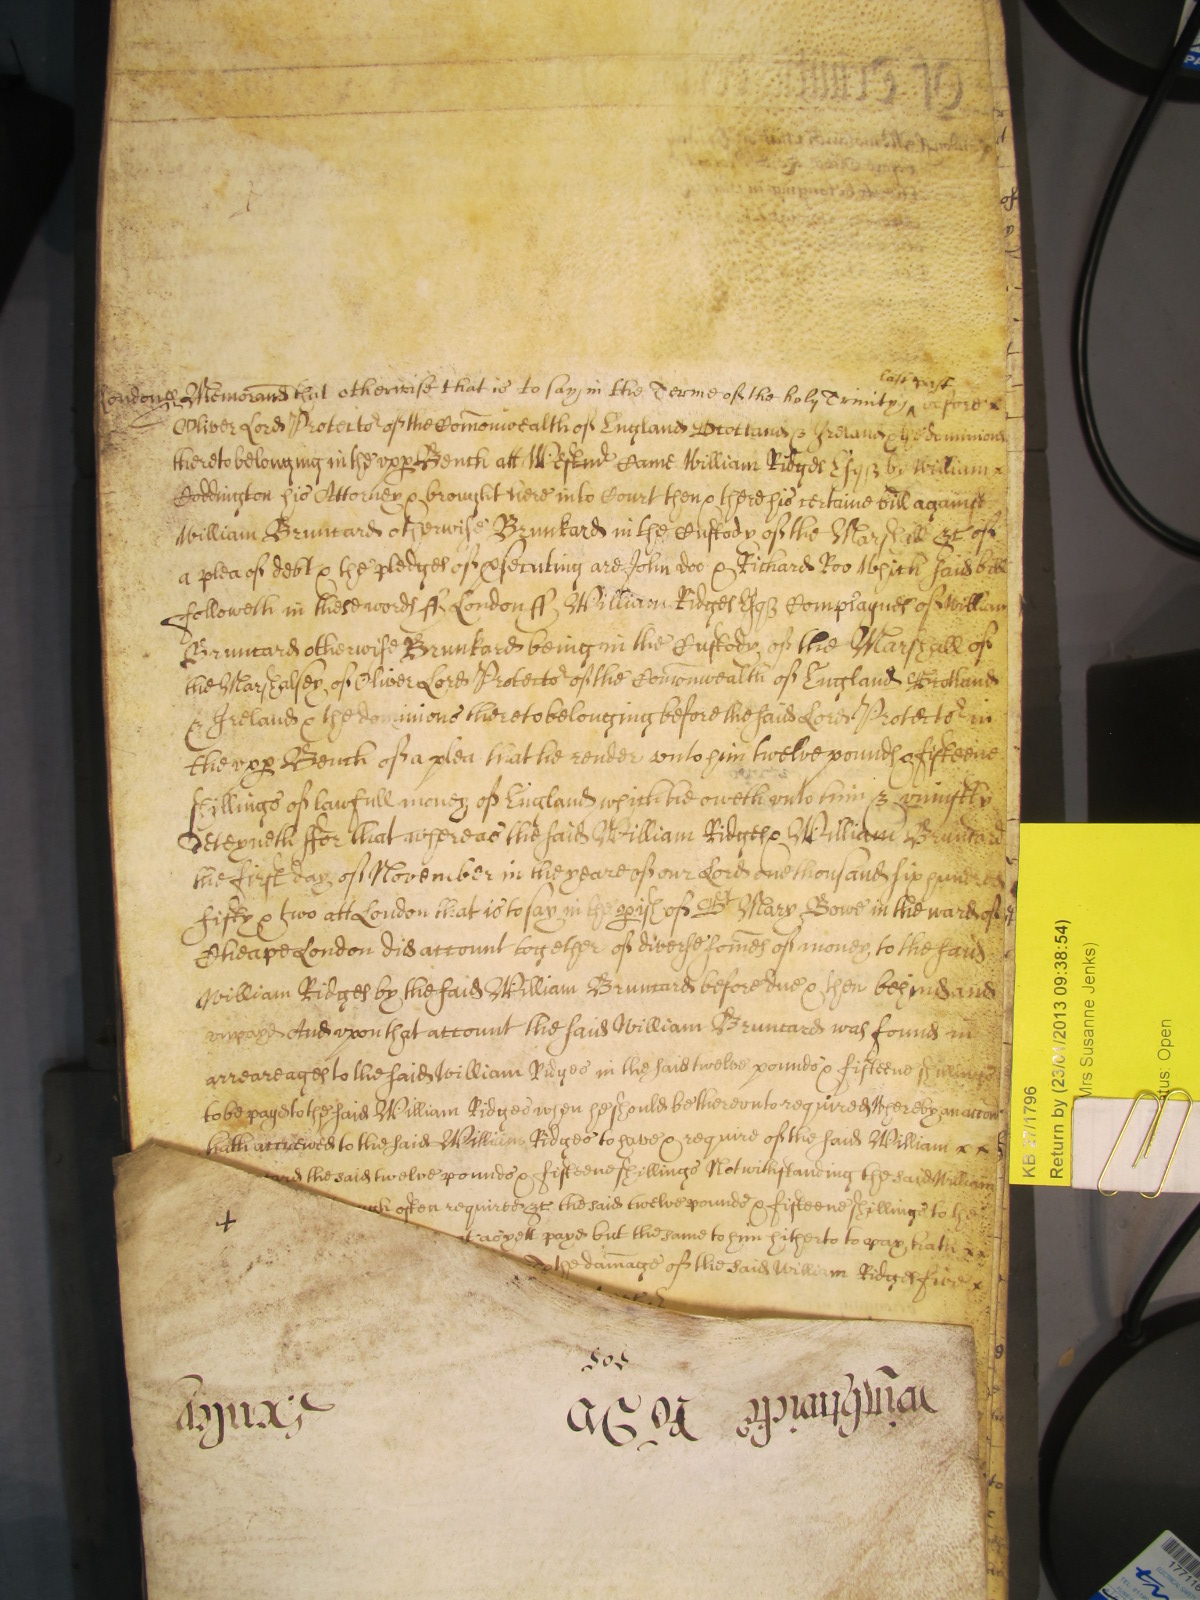 London ss Memorand that otherwise that is to say in the Terme of the holy Trinity last past before
Oliver Lord Protector of the Comonwealth of England Scotland & Ireland & the dominions
thereto belonging in the upp Bench att Westmr Came William Ridges Esqr by William x
Coddington his Attorney & brought here into Court then & there his certaine bill against
William Bruncard otherwise Brunkard in the Custody of the Marshall &c of
a plea of debt & the pledges of psecuting are John Doo & Richard Roo Which said bill
followeth in these words ss London ss William Ridges Esqr Complaynes of William
Bruncard otherwise Brunkard being in the Custody of the Marshall of
the Marshalsey of Oliver Lord Protector of the Comonwealth of England Scotland
& Ireland & the dominions thereto belonging before the said Lord Protector in
the upp Bench of a plea that he render unto him twelve pounds & fifteene
shillings of lawfull money of England which he oweth unto him & uniustly
deteyneth ffor that whereas the said William Ridges & William Bruncard
the first day of November in the yeare of our Lord one thousand six hundred
fifty & two att London that is to say in the pish of St Mary Bowe in the ward of
Cheape London did account together of diverse somes of money to the said
William Ridges by the said William Bruncard before due & then behind and
unpayd And upon that account the said William Bruncard was found in
arrearages to the said William Ridges in the said twelve pounds & fifteene shillings
to be payd to the said William Ridges when he should be thereunto required Whereby an accon
hath accrewed to the said William Ridges to have & require of the said William x x
the said twelve pounds & fifteene shillings Notwithstanding the said William
often required &c the said twelve pounds & fifteene shillings to the
yett payd but the same to him hitherto to pay hath x x
& the damage of the said William Ridges five x
+
KB 27/1796
Return by (23/01/2013 09:38:54)
Mrs Susanne Jenks)
tus: Open